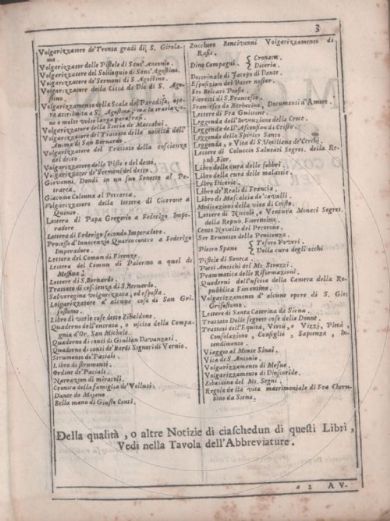 3
Volgarizzatore de' Trenta gradi di S. Girolamo.
Volgarizzatore delle Pistole di Sant' Antonio.
Volgarizzatore del Soliloquio di Sant' Agostino.
Volgarizzatore de' Sermoni di S. Agostino.
Volgarizzatore della Città di Dio di S. Agostino.
Volgarizzamento della Scala del Paradiso,
Volgarizzatore della Storia de' Maccabei.
Volgarizzatore del Trattato della notizia dell'
Anima di San Bernardo.
Volgarizzatore del Trattato della coscienza
del detto.
Volgarizzatore delle Pistole del detto.
Volgarizzator de' Sermoni del detto.
Giovanni Dondi in un suo Sonetto al Petrarca.
Giacomo Colonna al Petrarca.
Volgarizzatore della lettera di Cicerone a
Quinto.
Lettera di Papa Gregorio a Federigo Imperadore.
Lettera di Federigo secondo Imperadore.
Processo d'Innocenzio Quarto contro a Federigo
Imperadore.
Lettera del Comun di Firenze.
Lettera del Comun di Palermo a quel di
Messina.
Lettere di S. Bernardo.
Trattato di coscienza di S. Bernardo.
Salveregina volgarizzata, ed esposta.
Volgarizzatore d' alcune cose di San Grisostomo.
Libro di varie cose detto Zibaldone.
Quaderno dell'entrata, e uscita della Compagnia d'Or San Michele.
Quaderno di conti di Davanzati.
Quaderno di conti de' Bardi Signori di Vernio.
Strumento de' Paciali.
Libro di strumenti.
Ordine de' Paciali.
Narrazion di miracoli.
Cronica della famiglia de' Velluti.
Dante da Majano
Bella mano di Giusto Conti.
Zucchero Bencivenni Volgarizzamento di
Rasis.
Dino Compagni. { Cronaca.
Diceria.
Dottrinale di Jacopo di Dante.
Esposizion del Pater noster.
Fra Belcari Prosa.
Fioretti di S. Francesco.
Francesco da Barberino, Documenti d'Amore.
Lettere di Fra Guittone.
Leggenda dell'Invenzione della Croce.
Leggenda dell'Ascension di Cristo.
Leggenda dello Spirito Santo.
Leggenda, e Vita di S. Umiliana de' Cerchi.
Lettere di Coluccio Salutati Segret. della Repub. Fior.
Libro della cura delle febbri.
Libro della cura delle malattie.
Libro Dicerie.
Libro de' Reali di Francia.
Libro di Mascalcia de' cavalli.
Meditazioni della vita di Cristo.
Lettere di Niccolò, e Ventura Monaci Segret.
della Repub. Fiorentina.
Conto Novello del Pecorone.
Ser Brunetto della Penitenza.
Pietro Spano { Tesoro Poveri.
Della cura degli occhi
Pistole di Seneca.
Poeti Antichi del Mt. Strozzi.
Prammatica delle Riformagioni.
Quaderni dell'uscita della Camera della Repubblica Fiorentina.
Volgarizzamento d' alcune opere di S. Gio:
Grisostomo.
Lettere di Santa Caterina da Siena.
Trattato Delle segrete cose delle Donne.
Trattati dell'Equità, Virtù, e Vizj, Pietà,
Consolazione, Consiglio, Sapienza, Intendimento.
Viaggio al Monte Sinai.
Vita di S. Antonio.
Volgarizzamento di Mesue.
Volgarizzamento di Dioscoride.
Zibaldone del Mt. Segni.
Regola della vita matrimoniale di Fra Cherubino da Siena.
Della qualità, o altre Notizie di ciaschedun di questi Libri,
Vedi nella Tavola dell'Abbreviature.
a 2 AV.